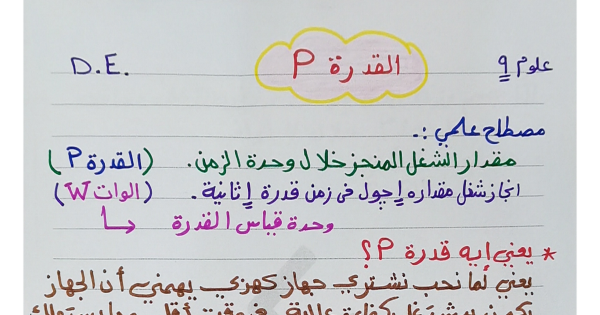 علوم 9 القدرة P D.E.
مصطلح علمي :.
مقدار الشغل المنجز خلال وحدة الزمن. (القدرة P)
انجاز شغل مقداره 1 جول في زمن قدرة 1 ثانية. (الوات W)
وحدة قياس القدرة
* يعني ايه قدرة P؟
يعني لما نحب نشتري جهاز كهربي يهمني أن الجهاز